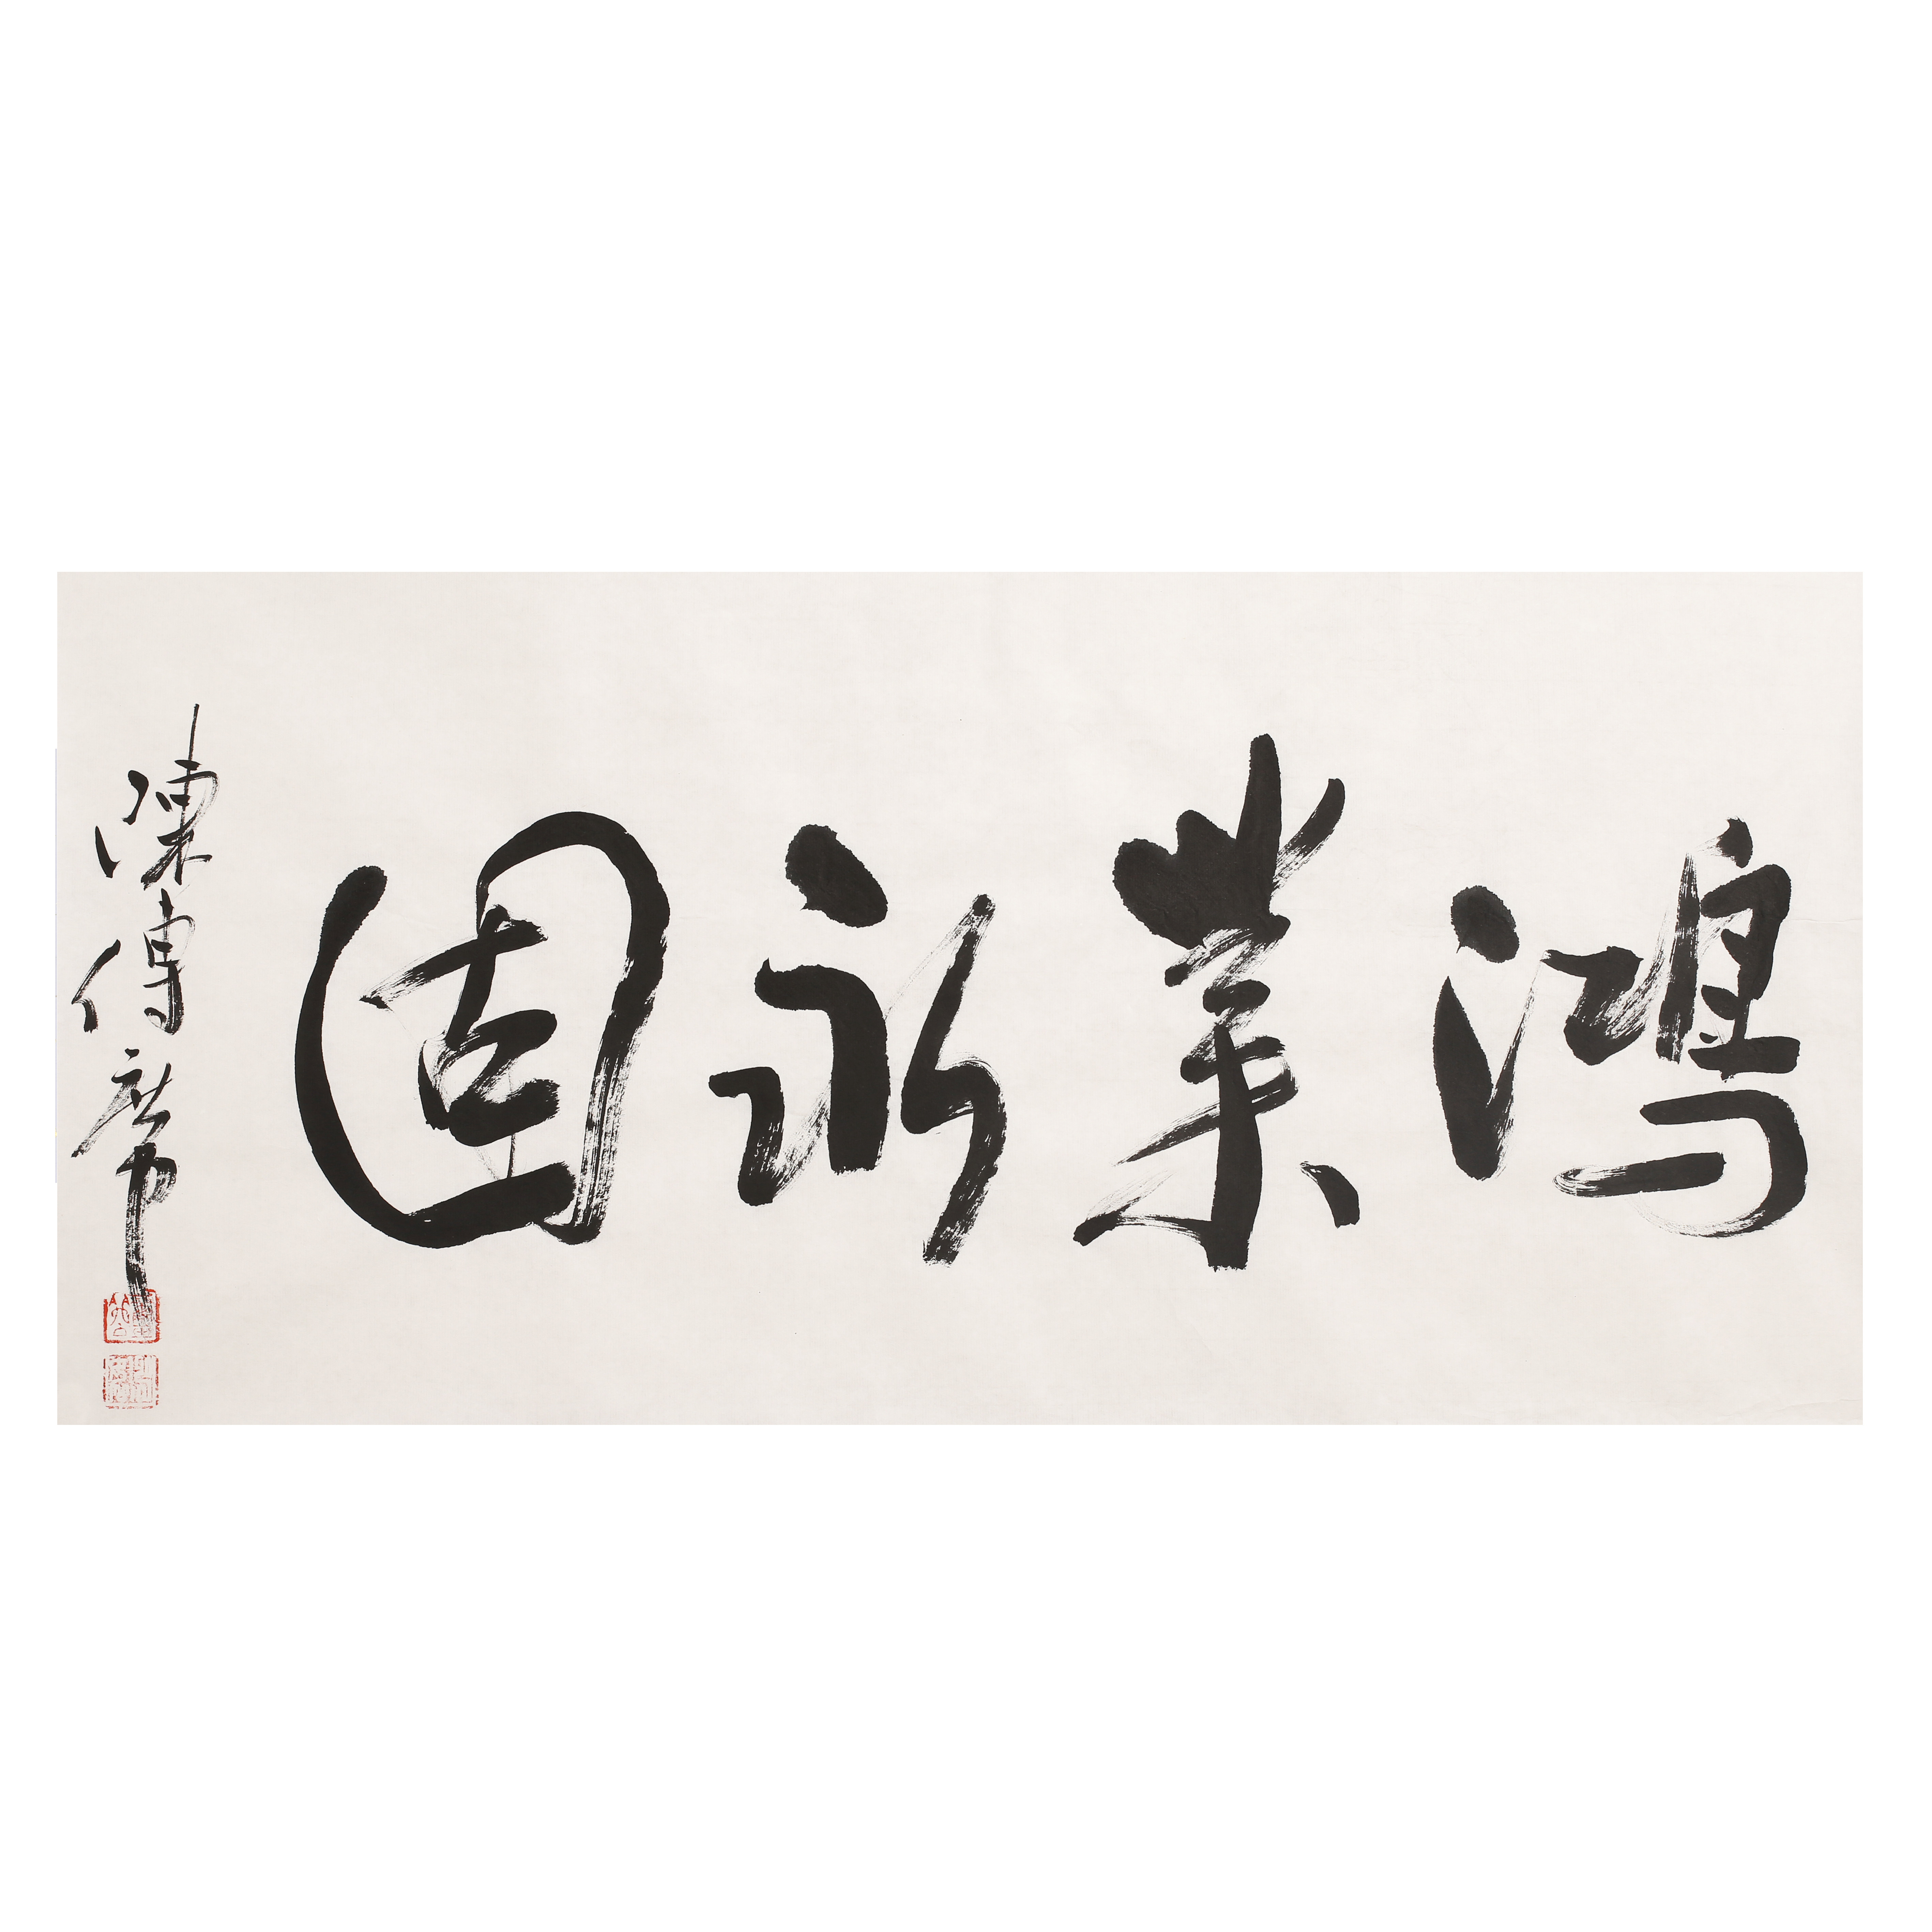 鴻業永固
陳傳席